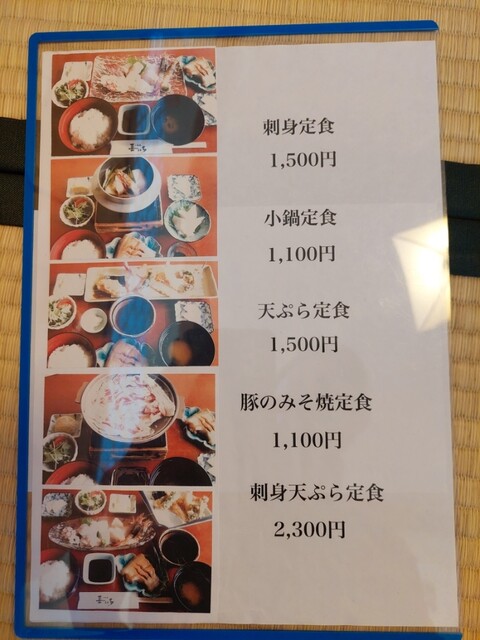 刺身定食
1,500円
小鍋定食
1,100円
天ぷら定食
1,500円
豚のみそ焼定食
1,100円
刺身天ぷら定食
2,300円